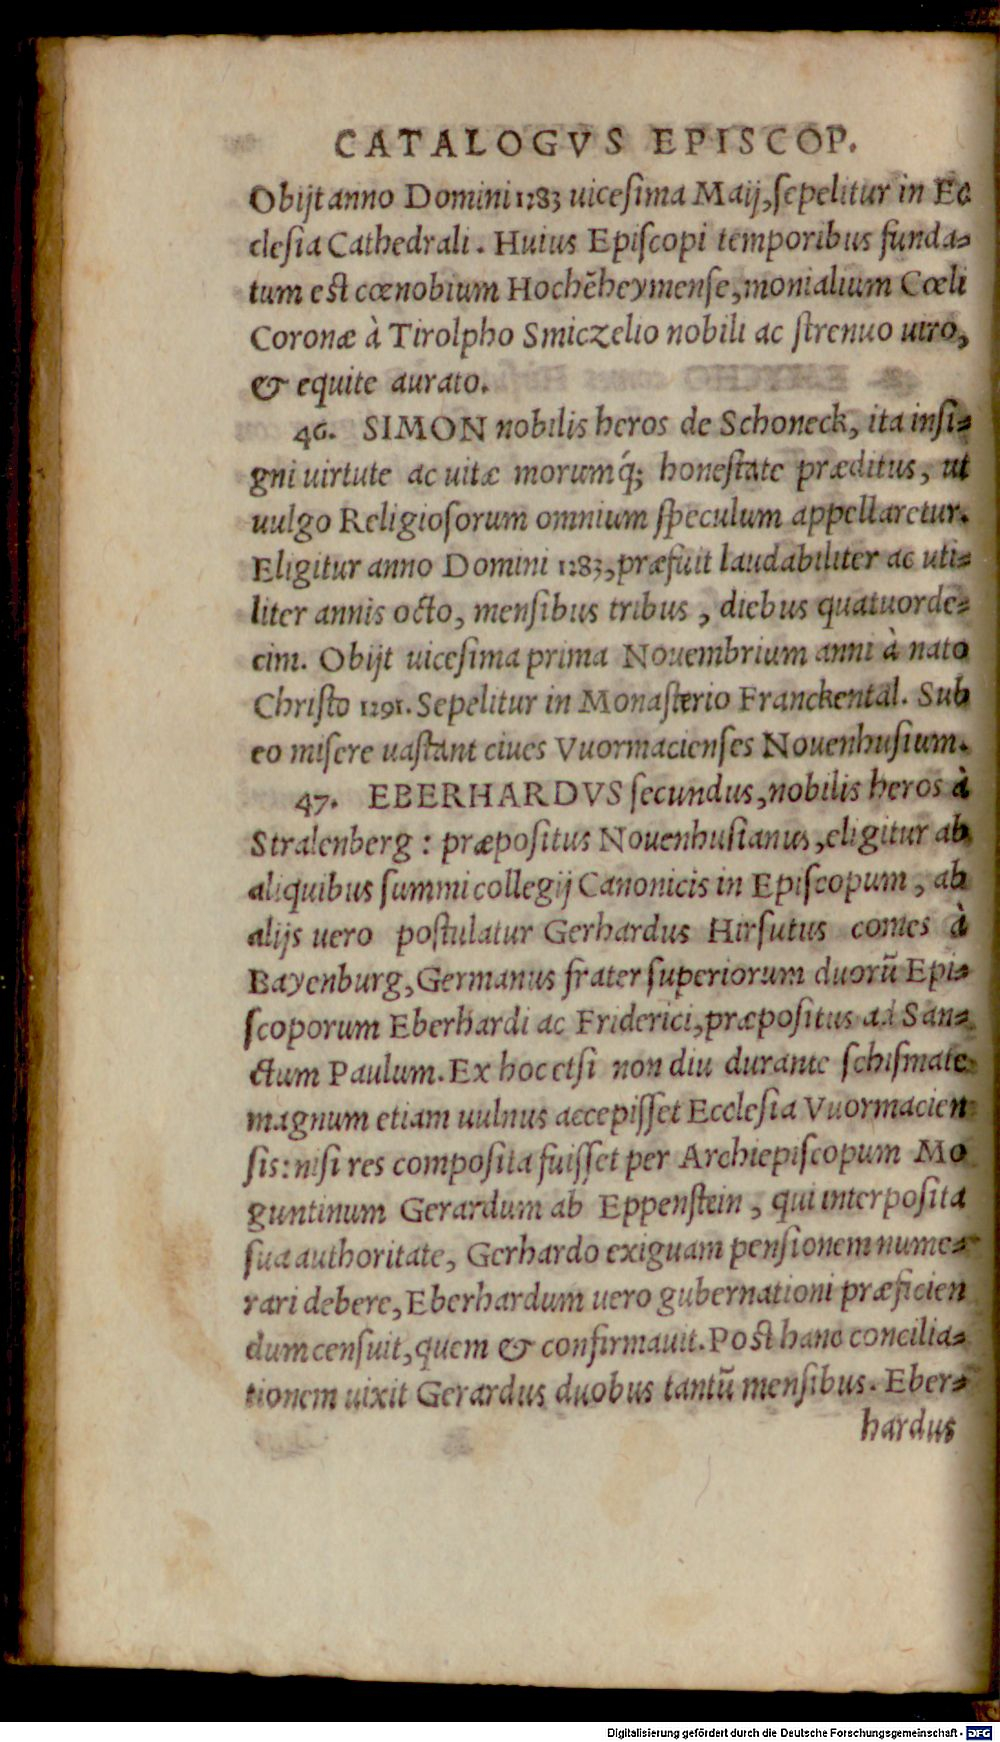 CATALOGVS EPISCOP.
Obijt anno Domini 1283 uicesima Maij, sepelitur in Ec
clesia Cathedrali. Huius Episcopi temporibus funda-
tum est cœnobium Hochēheymense, monialium Cœli
Coronæ à Tirolpho Smiczelio nobili ac strenuo uiro,
& equite aurato.
46. SIMON nobilis heros de Schoneck, ita insi-
gni uirtute ac uitæ morumq́; honestate præditus, ut
uulgo Religiosorum omnium speculum appellaretur.
Eligitur anno Domini 1283, præfuit laudabiliter ac uti-
liter annis octo, mensibus tribus, diebus quatuorde-
cim. Obijt uicesima prima Nouembrium anni à nato
Christo 1291. Sepelitur in Monasterio Franckental. Sub
eo misere uastant ciues Vuormacienses Nouenhusium.
47. EBERHARDVS secundus, nobilis heros à
Stralenberg: præpositus Nouenhusianus, eligitur ab
aliquibus summi collegij Canonicis in Episcopum, ab
alijs uero postulatur Gerhardus Hirsutus comes à
Bayenburg, Germanus frater superiorum duorū Epi-
scoporum Eberhardi ac Friderici, præpositus ad San-
ctum Paulum. Ex hoc etsi non diu durante schismate
magnum etiam uulnus accepisset Ecclesia Vuormacien
sis: nisi res composita fuisset per Archiepiscopum Mo
guntinum Gerardum ab Eppenstein, qui interposita
sua authoritate, Gerhardo exiguam pensionem nume-
rari debere, Eberhardum uero gubernationi præficien
dum censuit, quem & confirmauit. Post hanc concilia-
tionem uixit Gerardus duobus tantū mensibus. Eber-
hardus
Digitalisierung gefördert durch die Deutsche Forschungsgemeinschaft - DFG